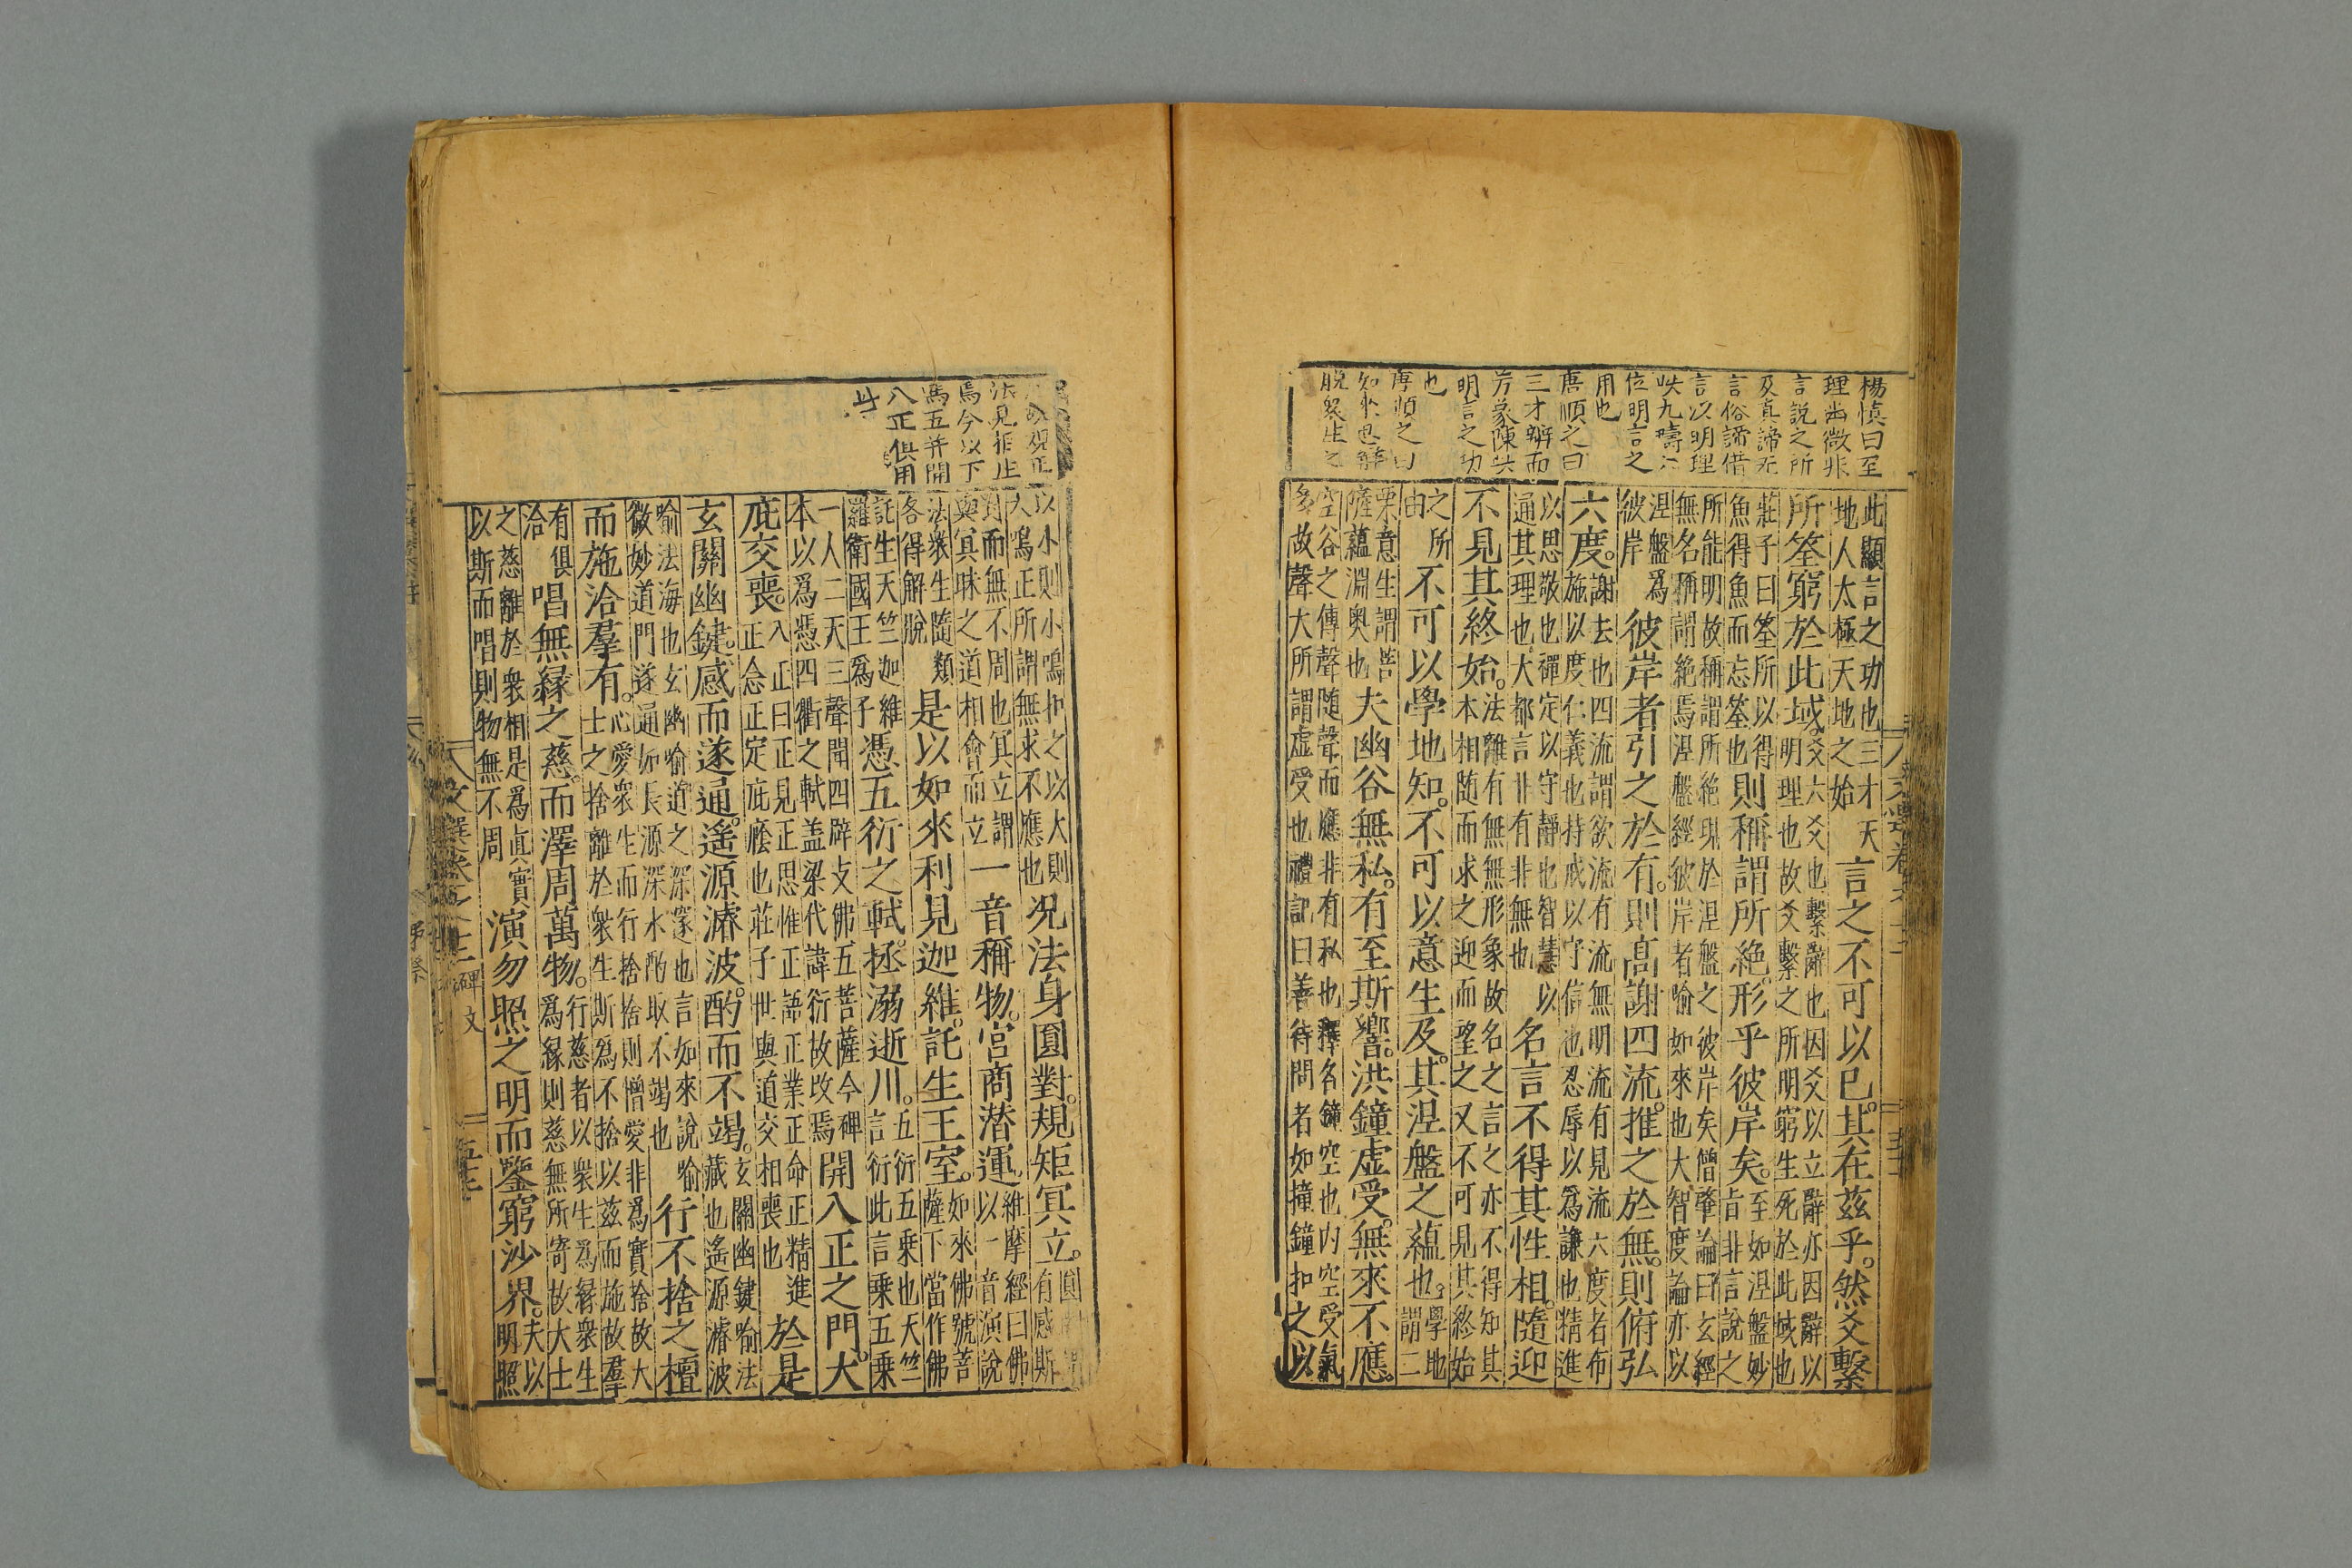 楊慎曰至
理幽微非
言說之所
及真諦无
言俗諦借
言以明理
位明言之
用也
唐順之曰
三才辨而
明言之功
也
唐順之曰
脫衆生之
此顯言之功也三才天
地人太極天地之始
言之不可以已其在茲乎然爻繫
所筌窮於此域
爻六爻也繫辭也因爻以立辭亦因辭以
明理也故爻繫之所明窮生死於此域也
莊子曰筌所以得
魚得魚而忘筌也
則稱謂所絕形乎彼岸矣
至如涅盤妙
旨非言說之
所能明故稱謂所絕現於涅盤之彼岸矣僧肇論曰玄經
無名稱謂絕焉涅盤經彼岸者喻如來也大智度論亦以
涅盤爲
彼岸
彼岸者引之於有則高謝四流推之於無則俯弘
六度
謝去也四流謂欲流有流無明流有見流六度者布
施以度仁義也持戒以守信也忍辱以爲謙也精進
以思敬也禪定以守靜也智慧以
通其理也大都言非有非無也
名言不得其性相隨迎
不見其終始
法離有無無形象故名之言之亦不得知其
本相随而求之迎而望之又不可見其終始
之所
由
不可以學地知不可以意生及其涅盤之蘊也
學地
謂二
乗意生謂菩
薩蘊淵奥也
夫幽谷無私有至斯響洪鐘虛受無來不應
空谷之傳聲随聲而應非有私也釋名鐘空也内空受氣
多故聲大所謂虛受也禮記曰善待問者如撞鐘扣之以
法見拒止
焉今以下
馮五衍開
八正俱用
此
以小則小鳴扣之以大則
大鳴正所謂無求不應也
况法身圓對規矩冥立
有感斯
對而無不周也冥立謂
與冥昧之道相會而立
一音稱物宮商潜運
維摩經曰佛
以一音演說
法衆生隨類
各得解脫
是以如來利見迦維託生王室
如來佛號菩
薩下當作佛
託生天竺迦維
羅衛國王爲子
憑五衍之軾拯溺逝川
五衍五乗也天竺
言衍此言乗五乗
一人二天三聲聞四辟支佛五菩薩今碑
本以爲憑四衢之軾盖梁代諱衍故改焉
開八正之門大
庇交喪
八正曰正見正思惟正語正業正命正精進
正念正定庇廕也莊子世與道交相喪也
於是
玄關幽鍵感而遂通遙源濬波酌而不竭
玄關幽鍵喻法
藏也遙源濬波
喻法海也玄幽喻道之深邃也言如來說喻
微妙道門遂通如長源深水酌取不竭也
行不捨之檀
而施洽羣有
心愛衆生而行捨捨則憎愛非爲實捨故大
士之捨離於衆生斯爲不捨以茲而施故羣
有俱
洽
唱無縁之慈而澤周萬物
行慈者以衆生爲縁衆生
爲縁則慈無所寄故大士
之慈離於衆相是爲眞實
以斯而唱則物無不周
演勿照之明而鑒窮沙界
夫以
明照